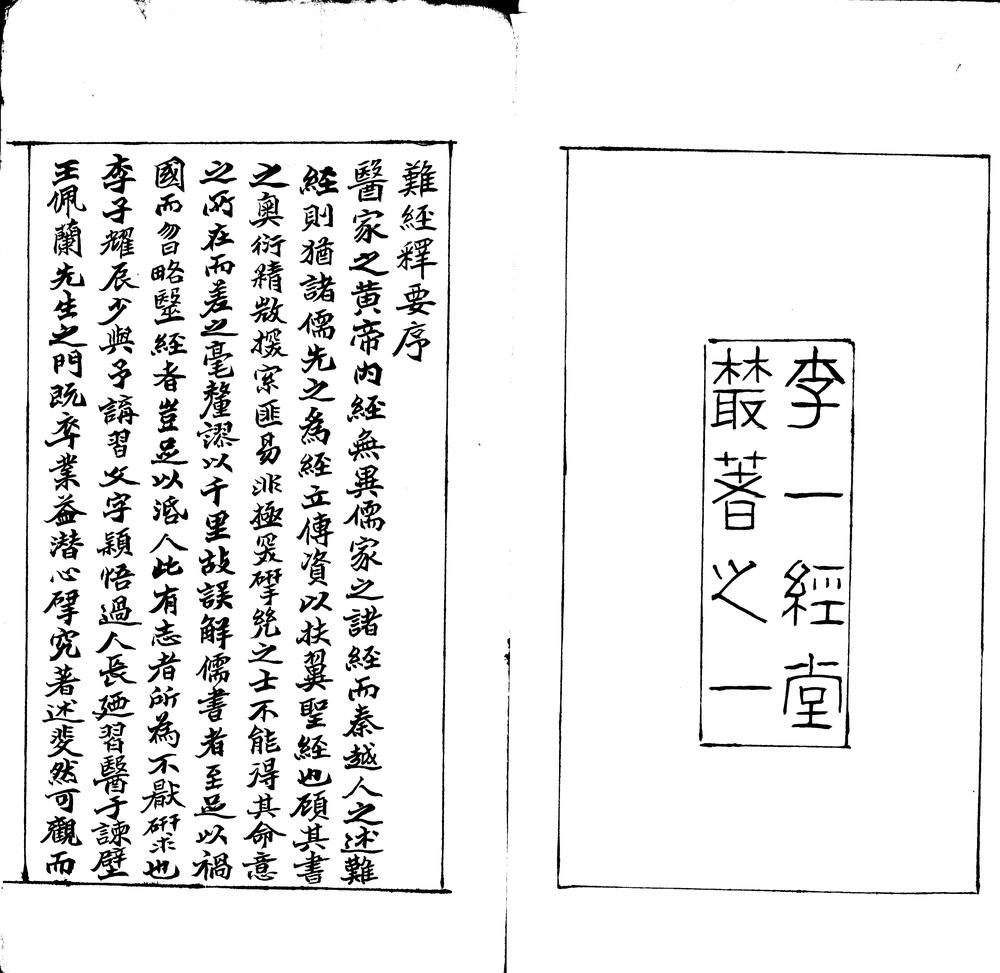 李一經堂
叢著之一
難經釋要序
醫家之黃帝內經無異儒家之諸經而秦越人之述難
經則猶諸儒先之為經立傳資以扶翼聖經也顧其書
之奧衍精微探窾匪易非極深研究之士不能得其命意
之所在而差之毫釐謬以千里故誤解儒書者至足以禍
國而曶略毉經者豈足以活人此有志者所為不厭研求也
李子耀辰少與予講習文字穎悟過人長廼習醫于諫壁
王佩蘭先生之門既卒業益潛心揅究著述斐然可觀而